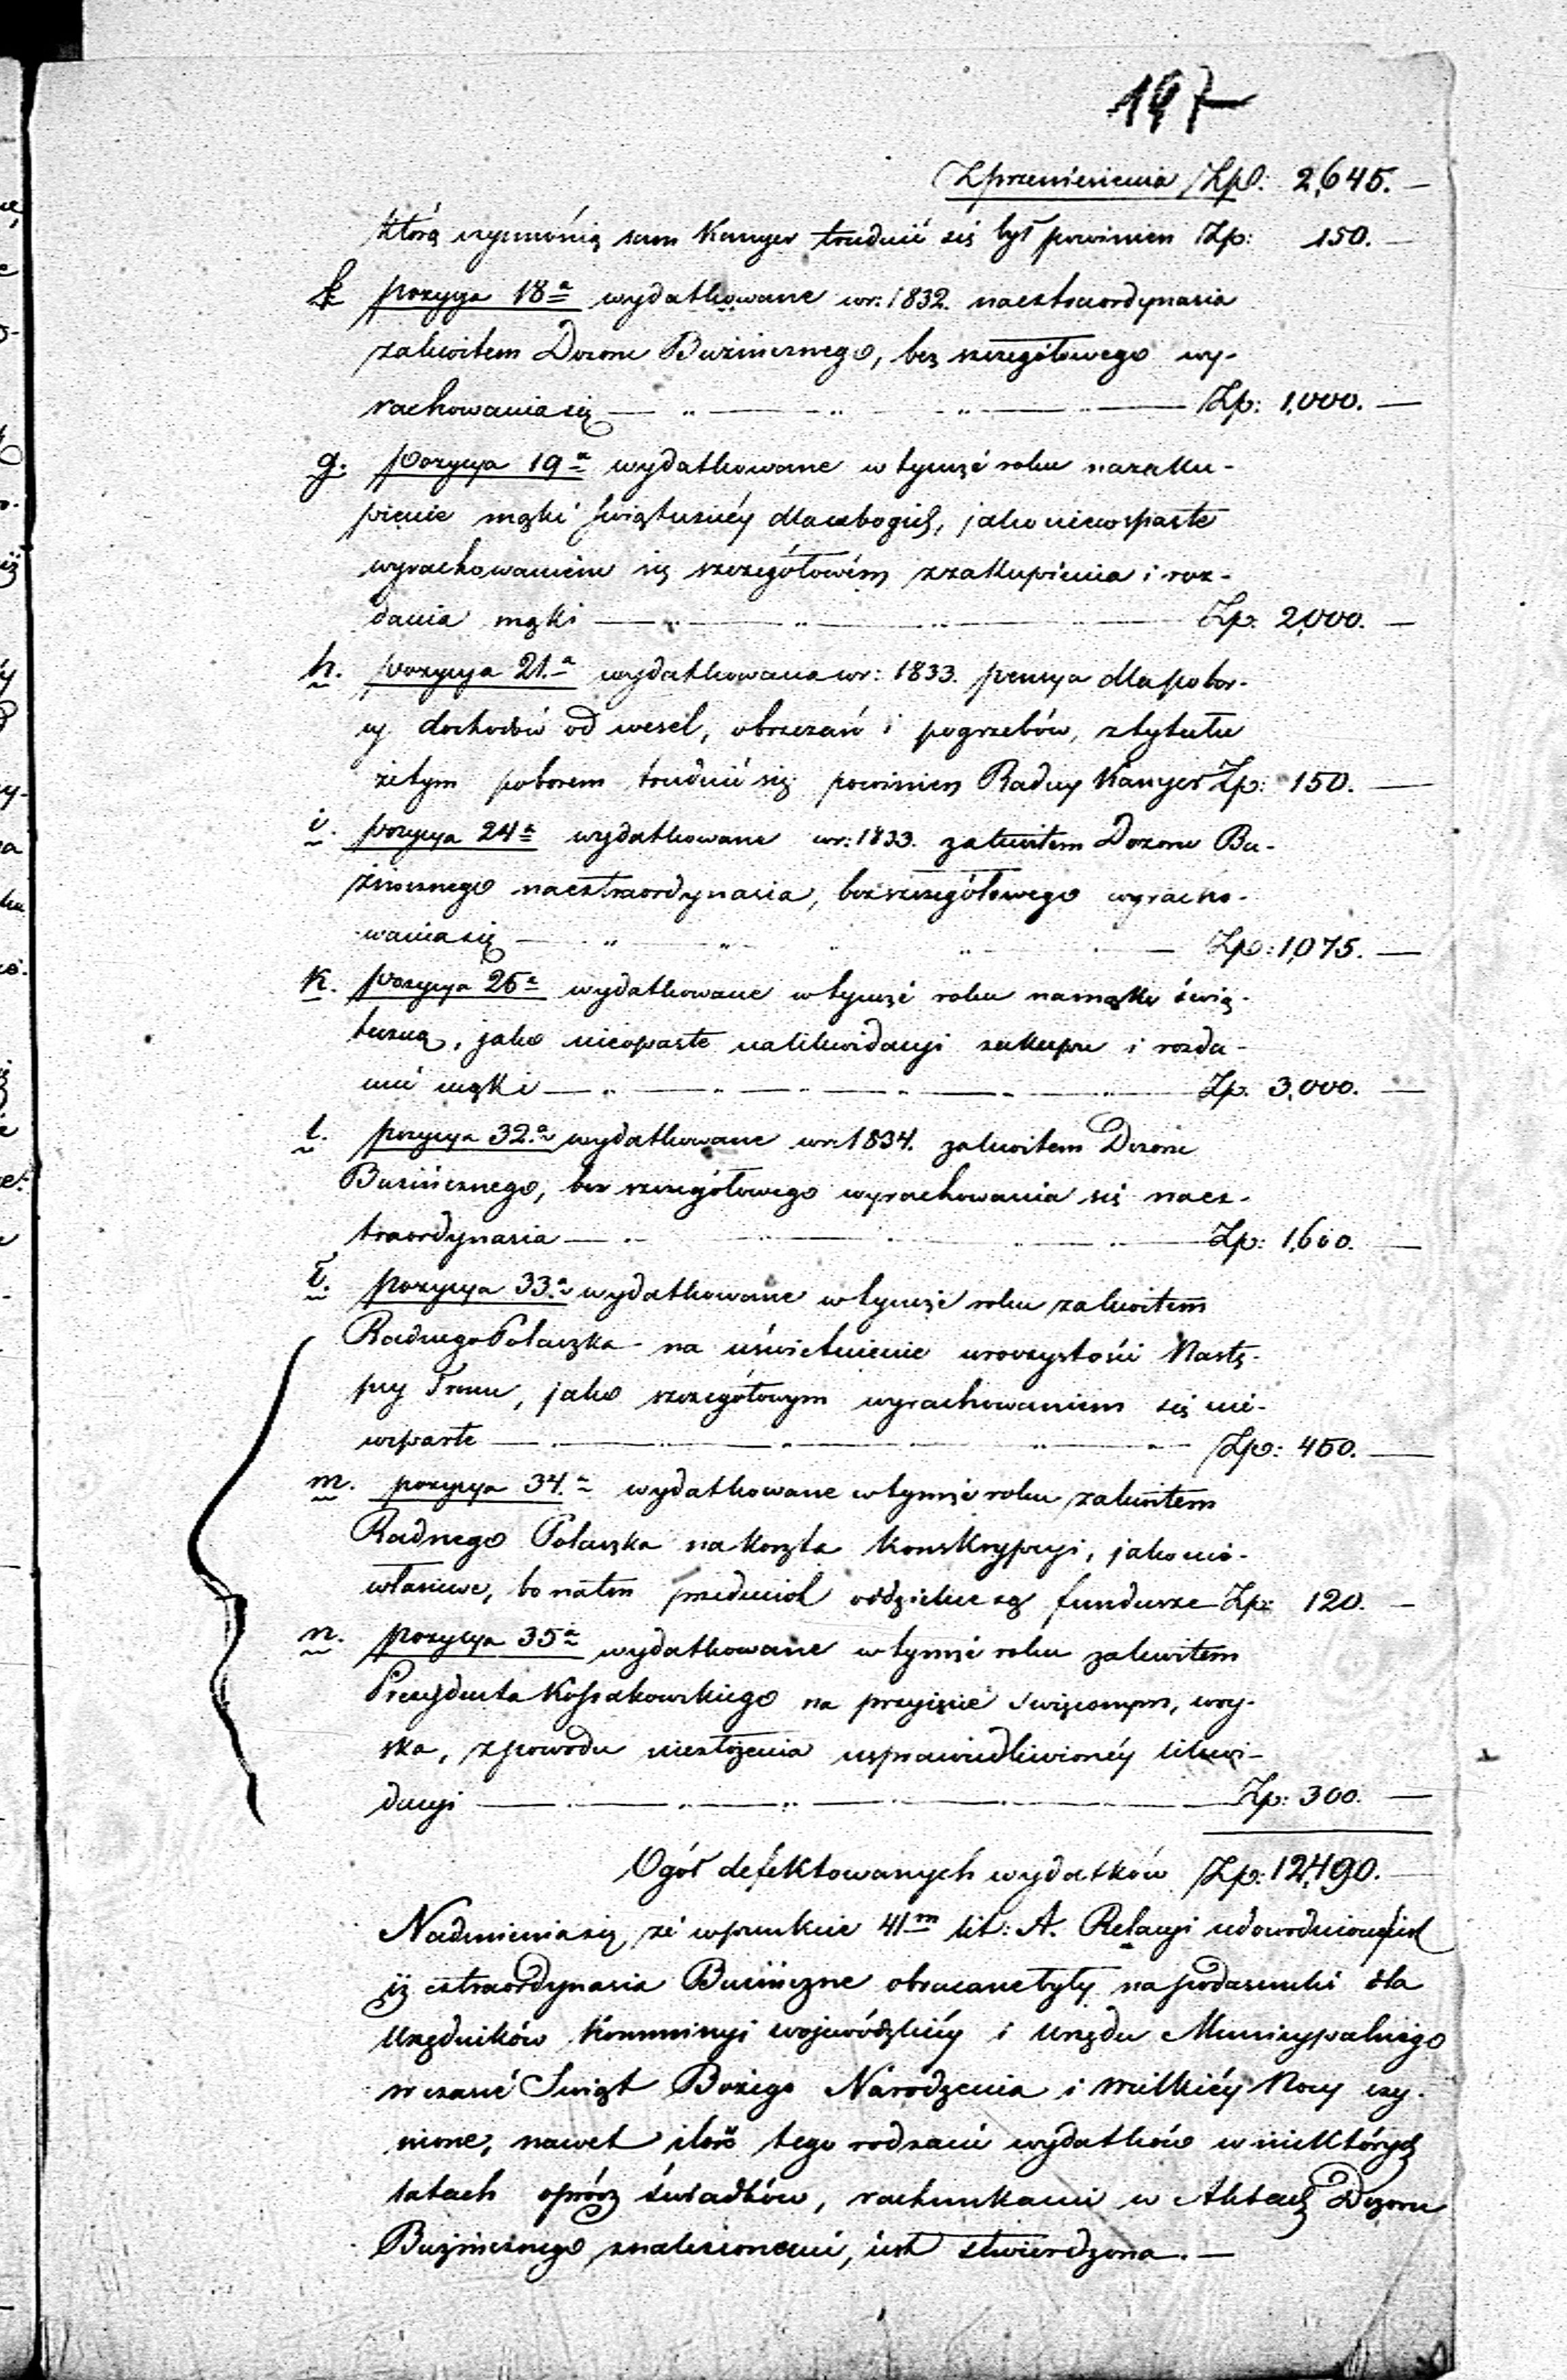 197
Zprzeniesienia Zlp: 2,645. —
którą czynnością sam Kassyer trudnić się był powinien Zlp: 150. —
f pozycya 18ª wydatkowane w r: 1832. na extraordynaria
za kwitem Dozoru Bużnicznego, bez szczegółowego wy-
rachowania się — „ — „ — „ — Zlp: 1,000. —
g. pozycya 19ª wydatkowane w tymże roku na zaku-
pienie mąki świątecznéy dla ubogich, jako niewsparte
wyrachowaniem się szczegółowém z zakupienia i roz-
dania mąki — „ — „ — „ — Zlp: 2,000. —
h. pozycya 21.ª wydatkowana w r: 1833. pensya dla pobor-
cy dochodów od wesel, obrzezań i pogrzebów, z tytułu
że tym poborem trudnić się powinien Radny Kassyer Zlp: 150. —
i. pozycya 24ª wydatkowane w r: 1833. za kwitem Dozoru Bu-
żnicznego na extraordynaria, bez szczegółowego wyracho-
wania się — „ — „ — „ — Zlp: 1,075. —
k. pozycya 25ª wydatkowane w tymże roku na mąkę świą-
teczną, jako nieoparte na likwidacyi zakupu i rozda-
nie mąki — „ — „ — „ — Zlp: 3,000. —
l. pozycya 32.ª wydatkowane w r: 1834. za kwitem Dozoru
Bużnicznego, bez szczegółowego wyrachowania się na ex-
traordynaria — „ — „ — „ — Zlp: 1,600. —
ł. pozycya 33.ª wydatkowane w tymże roku za kwitem
Radnego Polaczka na uświetnienie uroczystości Nastę-
pcy Tronu, jako szczegółowym wyrachowaniem się nie-
wsparte — „ — „ — „ — Zlp: 450. —
m. pozycya 34.ª wydatkowane w tymże roku za kwitem
Radnego Polaczka na koszta konskrypcyi, jako nie-
właściwe, bo na ten przedmiot oddzielne są fundusze Zlp: 120. —
n. pozycya 35ª wydatkowane w tymże roku za kwitem
Prezydenta Kossakowskiego na przyięcie woy-
ska, z powodu niezłożenia usprawiedliwionéy likwi-
dacyi — „ — „ — „ — Zlp: 300. —
Ogół defektowanych wydatków Zlp: 12,490. —
Nadmienia się, że w punkcie 41ᵐ lit: A. Relacyi udowodniono iest
iż extraordynaria Bużniczne obracane były na podarunki dla
Urzędników Kommissyi Wojewódzkiéy i Urzędu Municypalnego
w czasie Świąt Bożego Narodzenia i Wielkiéy Nocy czy-
nione, nawet ilość tego rodzaiu wydatków w niektórych
latach oprócz świadków, rachunkami w Aktach Dozoru
Bużnicznego znalezionemi, iest stwierdzona. —